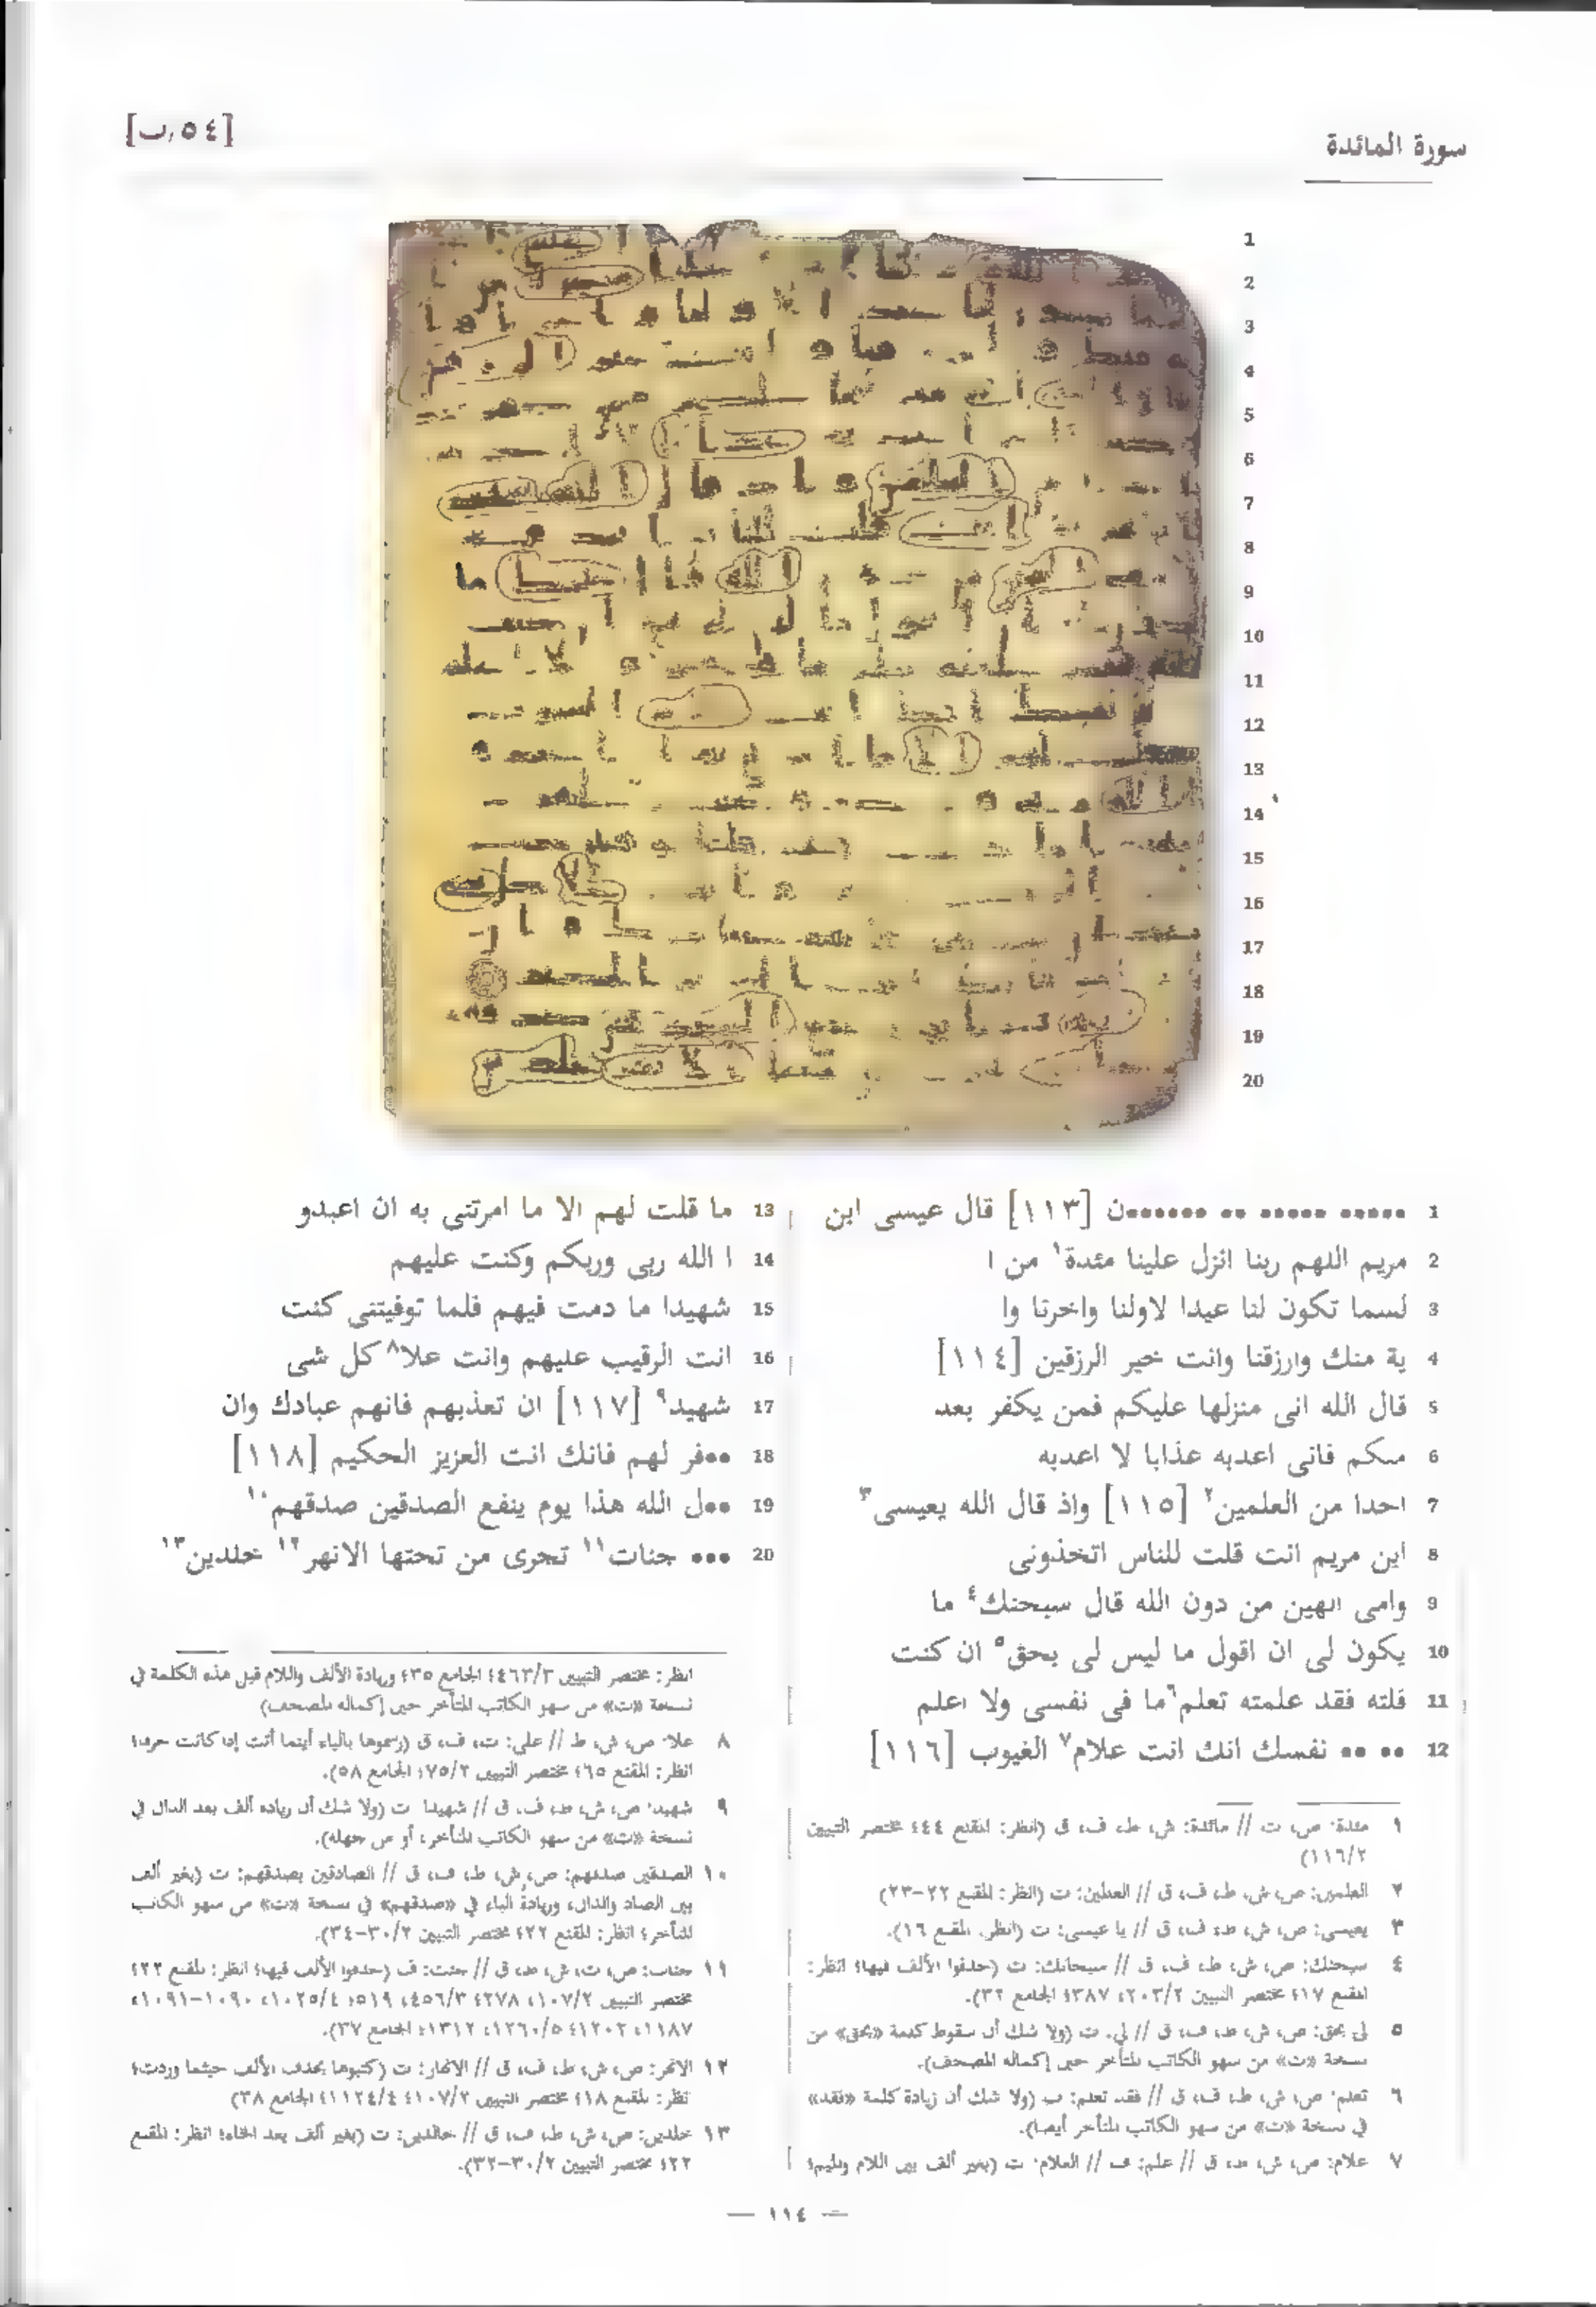 سورة المائدة
[٥٤,ب]
1
2
3
4
5
6
7
8
9
10
11
12
13
14
15
16
17
18
19
20
1 ••••• ••••• •• •••••••ن [١١٣] قال عيسى ابن
2 مريم اللهم ربنا انزل علينا مئدة١ من ا
3 لسما تكون لنا عيدا لاولنا واخرنا وا
4 ية منك وارزقنا وانت خير الرزقين [١١٤]
5 قال الله انى منزلها عليكم فمن يكفر بعد
6 مںكم فانى اعدبه عذابا لا اعدبه
7 احدا من العلمين٢ [١١٥] واذ قال الله يعيسى٣
8 ابن مريم انت قلت للناس اتخذونى
9 وامى الهين من دون الله قال سبحنك٤ ما
10 يكون لى ان اقول ما ليس لى بحق٥ ان كنت
11 قلته فقد علمته تعلم٦ ما فى نفسى ولا اعلم
12 •• •• نفسك انك انت علام٧ الغيوب [١١٦]
13 ما قلت لهم الا ما امرتنى به ان اعبدو
14 ا الله ربى وربكم وكنت عليهم
15 شهيدا ما دمت فيهم فلما توفيتنى كنت
16 انت الرقيب عليهم وانت علا٨ كل شى
17 شهيد٩ [١١٧] ان تعذبهم فانهم عبادك وان
18 ••فر لهم فانك انت العزيز الحكيم [١١٨]
19 ••ل الله هذا يوم ينفع الصدقين صدقهم١٠
20 ••• جنات١١ تجرى من تحتها الانهر١٢ خلدين١٣
١ مئدة: ص، ت // مائدة: ش، ط، ف، ق (انظر: المقنع ٤٤؛ مختصر التبيين
١١٦/٢)
٢ العلمين: ص، ش، ط، ف، ق // العىلمين: ت (انظر: المقنع ٢٢-٢٣)
٣ يعيسى: ص، ش، ط، ف، ق // يا عيسى: ت (انظر: المقنع ١٦).
٤ سبحنك: ص، ش، ط، ف، ق // سبحانك: ت (حذفوا الألف فيها؛ انظر:
المقنع ١٧؛ مختصر التبيين ٢٠٣/٢، ٣٨٧؛ الجامع ٣٢).
٥ لى بحق: ص، ش، ط، ف، ق // لي: ت (ولا شك أن سقوط كلمة «بحق» من
نسخة «ت» من سهو الكاتب المتأخر حين إكماله المصحف).
٦ تعلم: ص، ش، ط، ف، ق // فقد تعلم: ت (ولا شك أن زيادة كلمة «فقد»
في نسخة «ت» من سهو الكاتب المتأخر أيضا).
٧ علام: ص، ش، ط، ق // علم: ف // العلام: ت (بغير ألف بين اللام والميم؛
انظر: مختصر التبيين ٤٦٣/٣؛ الجامع ٣٥؛ وزيادة الألف واللام قبل هذه الكلمة في
نسخة «ت» من سهو الكاتب المتأخر حين إكماله المصحف)
٨ علا: ص، ش، ط // على: ت، ف، ق (رسموها بالياء أينما أتت إذا كانت حرفا؛
انظر: المقنع ٦٥؛ مختصر التبيين ٧٥/٢؛ الجامع ٥٨).
٩ شهيد: ص، ش، ط، ف، ق // شهيدا: ت (ولا شك أن زيادة ألف بعد الدال في
نسخة «ت» من سهو الكاتب المتأخر، أو من جهله).
١٠ الصدقين صدقهم: ص، ش، ط، ف، ق // الصادقين بصدقهم: ت (بغير ألف
بين الصاد والدال، وزيادة الباء في «صدقهم» في نسخة «ت» من سهو الكاتب
المتأخر؛ انظر: المقنع ٢٢؛ مختصر التبيين ٣٠/٢-٣٤).
١١ جنات: ص، ت، ش، ط، ق // جنت: ف (حذفوا الألف فيها؛ انظر: المقنع ٢٢؛
مختصر التبيين ١٠٧/٢، ٢٧٨؛ ٤٥٦/٣، ٥١٩؛ ١٠٢٥/٤، ١٠٩٠-١٠٩١،
١١٨٧، ١٢٠٢؛ ١٢٦٠/٥، ١٣١٢؛ الجامع ٣٧).
١٢ الانهر: ص، ش، ط، ف، ق // الانهار: ت (كتبوها بحذف الألف حيثما وردت؛
انظر: المقنع ١٨؛ مختصر التبيين ١٠٧/٢؛ ١١٢٤/٤؛ الجامع ٣٨)
١٣ خلدين: ص، ش، ط، ف، ق // خالدين: ت (بغير ألف بعد الخاء؛ انظر: المقنع
٢٢؛ مختصر التبيين ٣٠/٢-٣٢).
— ١١٤ —